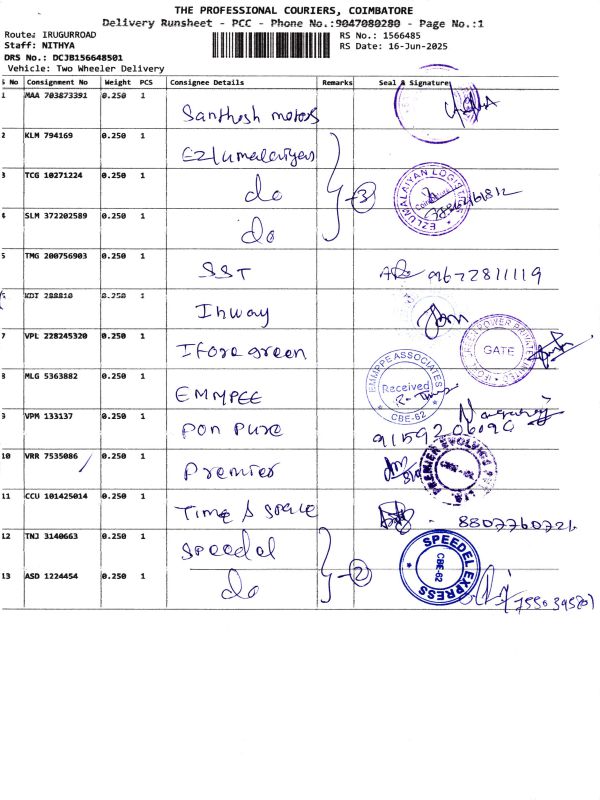 THE PROFESSIONAL COURIERS, COIMBATORE
Delivery Runsheet - PCC - Phone No.:9047080280 - Page No.:1
Route: IRUGURROAD RS No.: 1566485
Staff: NITHYA RS Date: 16-Jun-2025
DRS No.: DCJB156648501
Vehicle: Two Wheeler Delivery
S No Consignment No Weight PCS Consignee Details Remarks Seal & Signature
1 MAA 703873391 0.250 1 Santhosh motors
2 KLM 794169 0.250 1 Ezlumalaiyan
3 TCG 10271224 0.250 1 do 3 EZLUMALAIYAN LOGISTICS
4 SLM 372202589 0.250 1 do
5 TMG 200756903 0.250 1 SST 9672811119
6 KDI 288810 0.250 1 Inway
7 VPL 228245320 0.250 1 Ifore green GATE
8 MLG 5363882 0.250 1 EMMPEE EMMPPE ASSOCIATES Received CBE-62
9 VPM 133137 0.250 1 pon pure
10 VRR 7535086 0.250 1 Premier PREMIER EVOLVICS
11 CCU 101425014 0.250 1 Time & space 8807760721
12 TNJ 3140663 0.250 1 Speedel 2 SPEEDEL EXPRESS CBE-62
13 ASD 1224454 0.250 1 do